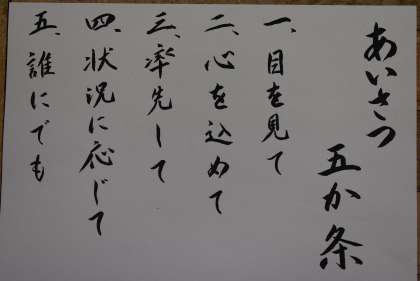 あいさつ
五か条
一、目を見て
二、心を込めて
三、率先して
四、状況に応じて
五、誰にでも